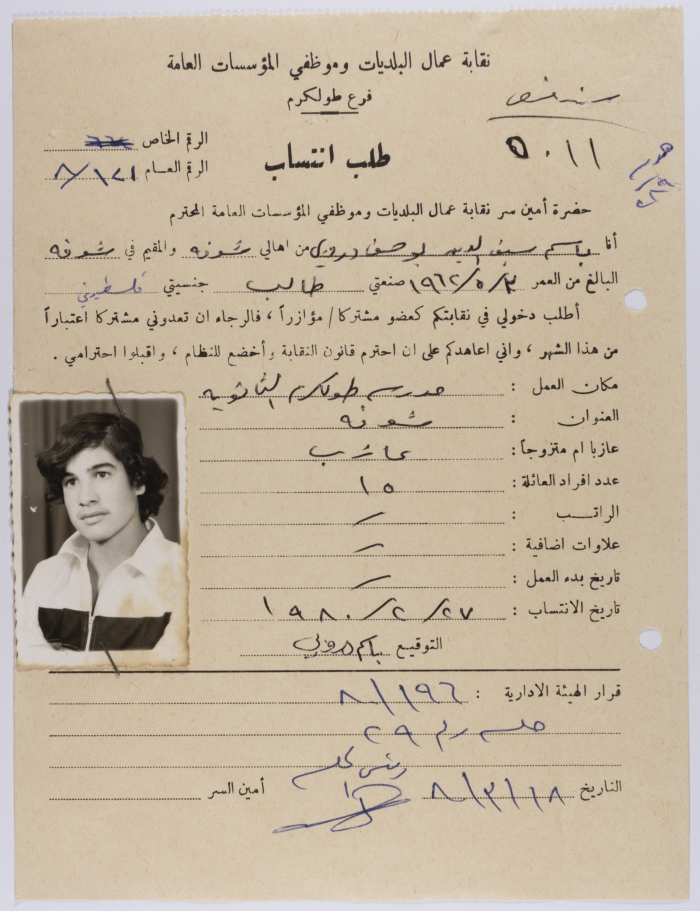 نقابة عمال البلديات وموظفي المؤسسات العامة
فرع طولكرم
٥٠١١
الرقم الخاص
طلب انتساب
الرقم العام ٨/١٢١
حضرة أمين سر نقابة عمال البلديات وموظفي المؤسسات العامة المحترم
أنا باسم سيف الدين من اهالي شوفه والمقيم في شوفه
البالغ من العمر ١٩٦٢/٥/٣ صنعتي طالب جنسيتي فلسطيني
أطلب دخولي في نقابتكم كعضو مشتركا / مؤازراً ، فالرجاء ان تعدوني مشتركا اعتباراً
من هذا الشهر ، واني اعاهدكم على ان احترم قانون النقابة وأخضع للنظام ، واقبلوا احترامي .
مكان العمل : مدرسة طولكرم الثانويه
العنوان : شوفه
عازبا ام متزوجاً : عازب
عدد افراد العائلة : ١٥
الراتب : /
علاوات اضافية : /
تاريخ بدء العمل : /
تاريخ الانتساب : ١٩٨٠/٢/٢٧
التوقيع باسم
قرار الهيئة الادارية : ٨/١٩٦
جلسه رقم ٢٩
التاريخ ٨/٣/١٨ أمين السر